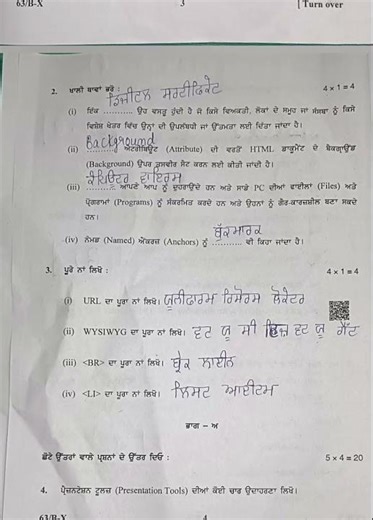 63/B-X 3 [ Turn over
2. ਖਾਲੀ ਥਾਵਾਂ ਭਰੋ : 4 x 1 = 4
ਡਿਜੀਟਲ ਸਰਟੀਫਿਕੇਟ
(i) ਇੱਕ ............ ਉਹ ਵਸਤੂ ਹੁੰਦੀ ਹੈ ਜੋ ਕਿਸੇ ਵਿਅਕਤੀ, ਲੋਕਾਂ ਦੇ ਸਮੂਹ ਜਾਂ ਸੰਸਥਾ ਨੂੰ ਕਿਸੇ
ਵਿਸ਼ੇਸ਼ ਖੇਤਰ ਵਿੱਚ ਉਨ੍ਹਾਂ ਦੀ ਉਪਲਬਧੀ ਜਾਂ ਉੱਤਮਤਾ ਲਈ ਦਿੱਤਾ ਜਾਂਦਾ ਹੈ।
Background
(ii) ............ ਐਟਰੀਬਿਊਟ (Attribute) ਦੀ ਵਰਤੋਂ HTML ਡਾਕੂਮੈਂਟ ਦੇ ਬੈਕਗ੍ਰਾਊਂਡ
(Background) ਉਪਰ ਤਸਵੀਰ ਸੈਟ ਕਰਨ ਲਈ ਕੀਤੀ ਜਾਂਦੀ ਹੈ।
ਕੰਪਿਊਟਰ ਵਾਇਰਸ
(iii) ............ ਆਪਣੇ ਆਪ ਨੂੰ ਦੁਹਰਾਉਂਦੇ ਹਨ ਅਤੇ ਸਾਡੇ PC ਦੀਆਂ ਫਾਈਲਾਂ (Files) ਅਤੇ
ਪ੍ਰੋਗਰਾਮਾਂ (Programs) ਨੂੰ ਸੰਕਰਮਿਤ ਕਰਦੇ ਹਨ ਅਤੇ ਉਹਨਾਂ ਨੂੰ ਗੈਰ-ਕਾਰਜਸ਼ੀਲ ਬਣਾ ਸਕਦੇ
ਹਨ।
ਬੁੱਕਮਾਰਕ
(iv) ਨੇਮਡ (Named) ਐਂਕਰਜ਼ (Anchors) ਨੂੰ ............ ਵੀ ਕਿਹਾ ਜਾਂਦਾ ਹੈ।
3. ਪੂਰੇ ਨਾਂ ਲਿਖੋ : 4 x 1 = 4
(i) URL ਦਾ ਪੂਰਾ ਨਾਂ ਲਿਖੋ। ਯੂਨੀਫਾਰਮ ਰਿਸੋਰਸ ਲੋਕੇਟਰ
(ii) WYSIWYG ਦਾ ਪੂਰਾ ਨਾਂ ਲਿਖੋ। ਵਟ ਯੂ ਸੀ ਇਜ਼ ਵਟ ਯੂ ਗੈੱਟ
(iii) <BR> ਦਾ ਪੂਰਾ ਨਾਂ ਲਿਖੋ। ਬ੍ਰੇਕ ਲਾਈਨ
(iv) <LI> ਦਾ ਪੂਰਾ ਨਾਂ ਲਿਖੋ। ਲਿਸਟ ਆਈਟਮ
ਭਾਗ - ਅ
ਛੋਟੇ ਉੱਤਰਾਂ ਵਾਲੇ ਪ੍ਰਸ਼ਨਾਂ ਦੇ ਉੱਤਰ ਦਿਓ : 5 x 4 = 20
4. ਪ੍ਰੈਜ਼ਨਟੇਸ਼ਨ ਟੂਲਜ਼ (Presentation Tools) ਦੀਆਂ ਕੋਈ ਚਾਰ ਉਦਾਹਰਣਾ ਲਿਖੋ।
63/B-X 4